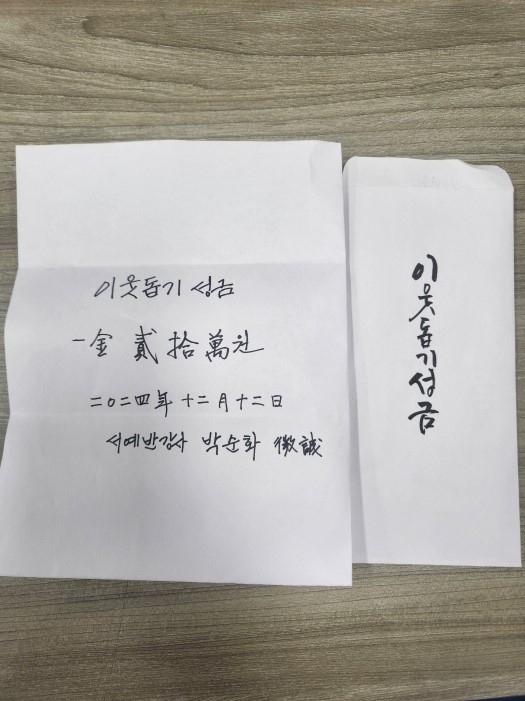 이웃돕기 성금
一金 貳拾萬원
二0二四年 十二月 十二日
서예반강사 박순화 微誠
이웃돕기성금